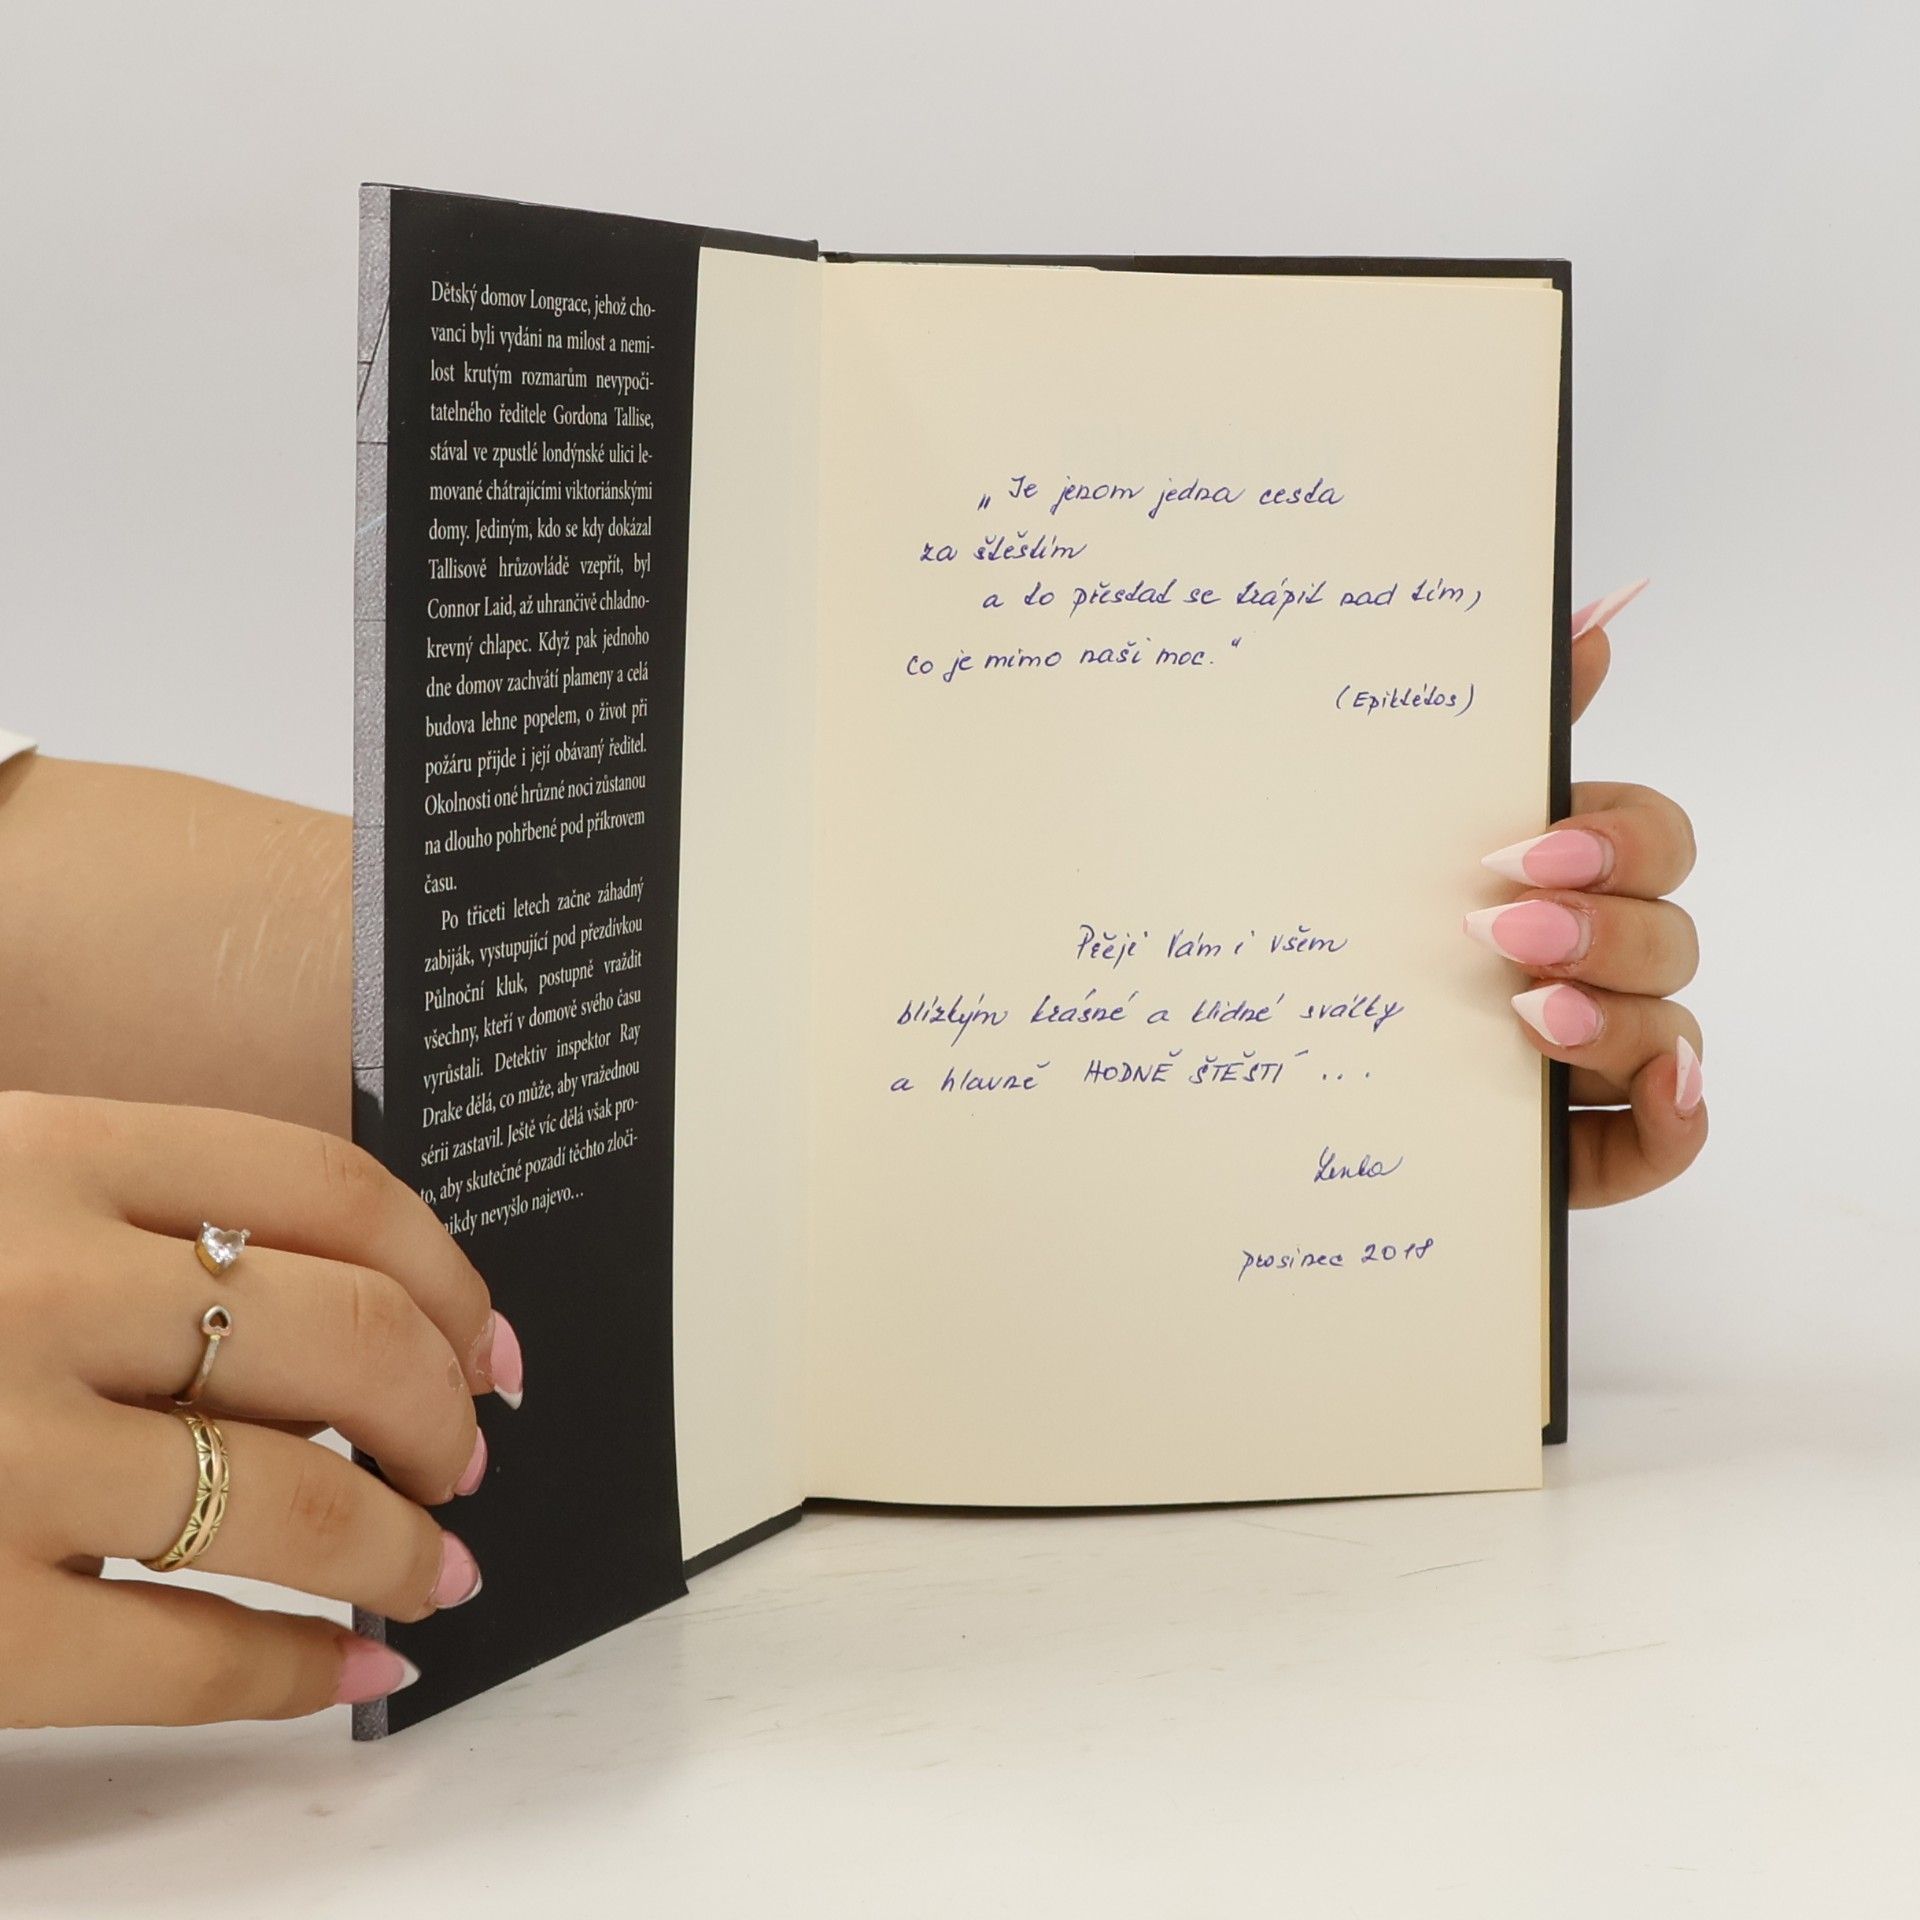 Dětský domov Longrace, jehož cho-
vanci byli vydáni na milost a nemi-
lost krutým rozmarům nevypoči-
tatelného ředitele Gordona Tallise,
stával ve zpustlé londýnské ulici le-
mované chátrajícími viktoriánskými
domy. Jediným, kdo se kdy dokázal
Tallisově hrůzovládě vzepřít, byl
Connor Laid, až uhrančivě chladno-
krevný chlapec. Když pak jednoho
dne domov zachvátí plameny a celá
budova lehne popelem, o život při
požáru přijde i její obávaný ředitel.
Okolnosti oné hrůzné noci zůstanou
na dlouho pohřbené pod příkrovem
času.
Po třiceti letech začne záhadný
zabiják, vystupující pod přezdívkou
Půlnoční kluk, postupně vraždit
všechny, kteří v domově svého času
vyrůstali. Detektiv inspektor Ray
Drake dělá, co může, aby vražednou
sérii zastavil. Ještě víc dělá však pro-
to, aby skutečné pozadí těchto zloči-
nikdy nevyšlo najevo...
„Je jenom jedna cesta
za štěstím
a to přestat se trápit nad tím,
co je mimo naši moc.“
(Epiktétos)
Přeji Vám i všem
blízkým krásné a klidné svátky
a hlavně HODNĚ ŠTĚSTÍ ...
Lenka
prosinec 2018